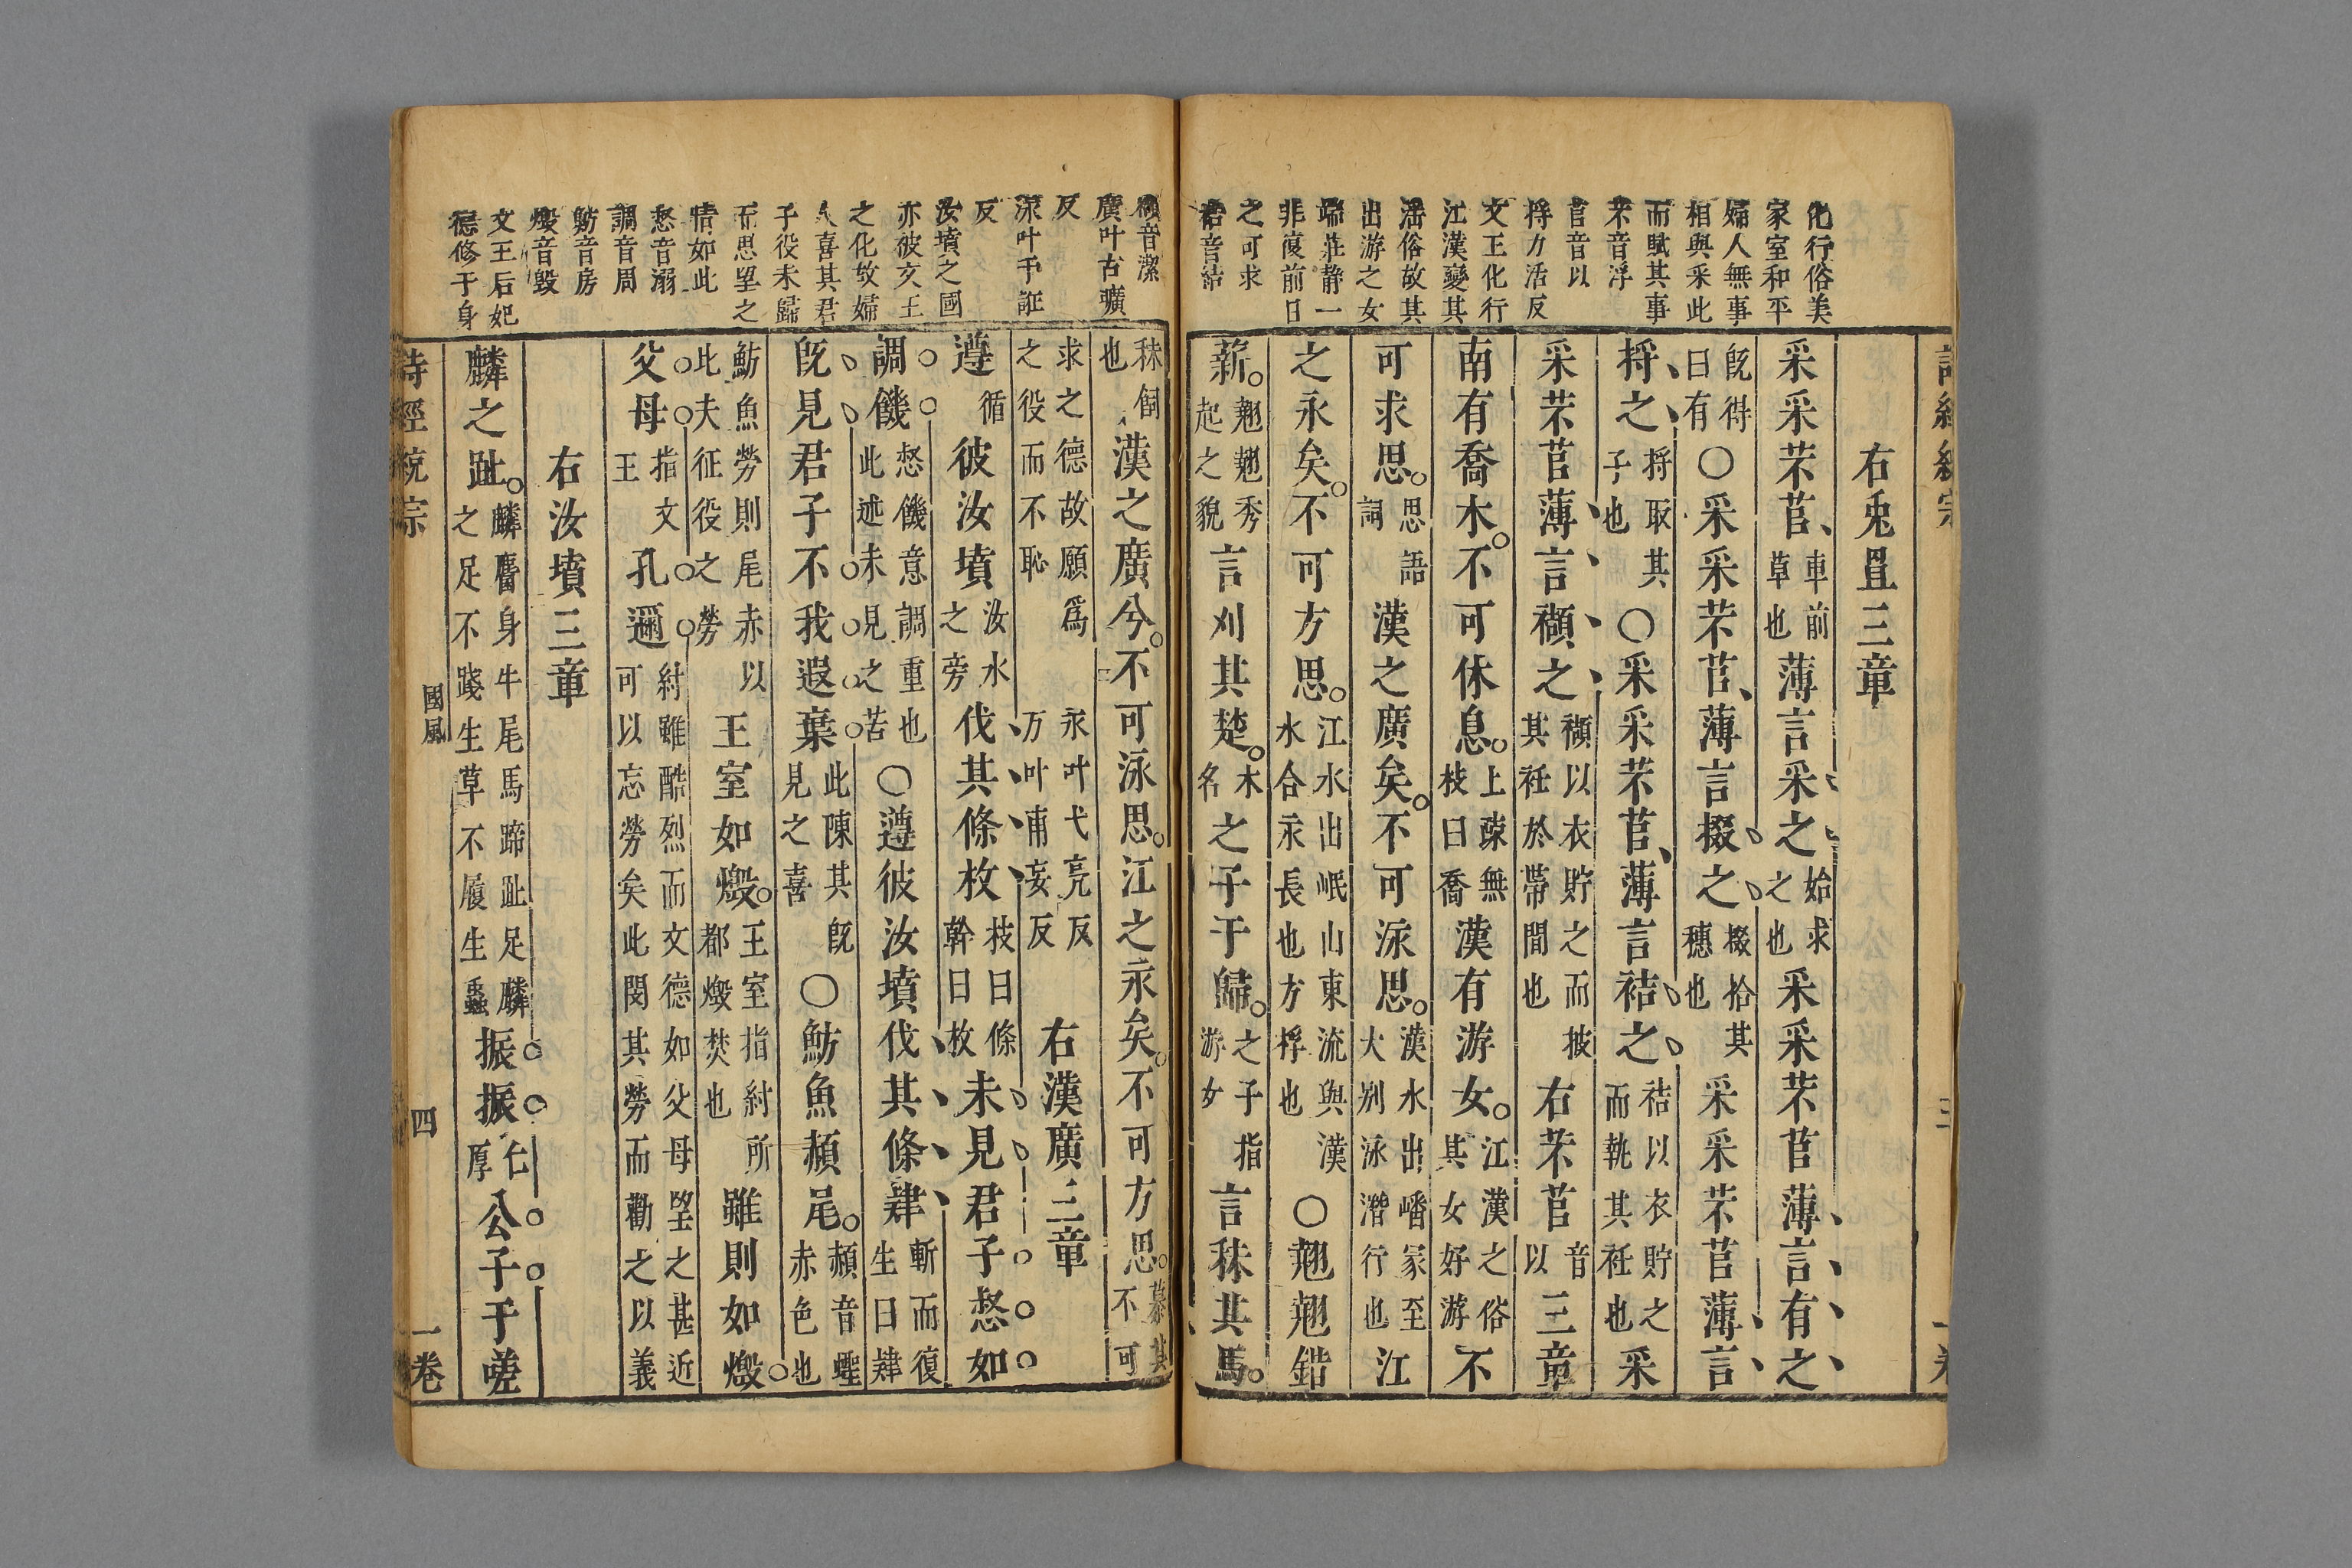 化行俗美
家室和平
婦人無事
相與采此
而賦其事
芣音浮
苢音以
捋力活反
文王化行
江漢變其
滛俗故其
出游之女
端莊静一
非復前日
之可求
袺音結
右兎罝三章
采采芣苢車前草也薄言采之始求之也采采芣苢薄言有之
既得曰有〇采采芣苢薄言掇之掇拾其穗也采采芣苢薄言
捋之捋取其子也〇采采芣苢薄言袺之袺以衣貯之而執其衽也采
采芣苢薄言襭之襭以衣貯之而披其衽於帶間也右芣苢音以三章
南有喬木。不可休息。上疎無枝曰喬漢有游女。江漢之俗其女好游不
可求思。思語詞漢之廣矣。不可泳思。漢水出嶓冢至大别泳濳行也江
之永矣。不可方思。江水出岷山東流與漢水合永長也方桴也〇翹翹錯
薪。翹翹秀起之貌言刈其楚。木名之子于歸。之子指游女言秣其馬。
襭音潔
廣叶古曠
反
泳叶于誑
反
汝墳之國
亦被文王
之化故婦
人喜其君
子役未歸
而思望之
情如此
惄音溺
調音周
魴音房
燬音毀
文王后妃
德修于身
秣飼也漢之廣兮。不可泳思。江之永矣。不可方思。慕其不可
求之德故願爲之役而不恥永叶弋亮反万叶甫妄反右漢廣三章
遵循彼汝墳汝水之旁伐其條枚枝曰條幹曰枚未見君子惄如
調饑惄饑意調重也此述未見之苦〇遵彼汝墳伐其條肄斬而復生曰肄
既見君子不我遐棄此陳其既見之喜〇魴魚赬尾。赬音蟶赤色也
魴魚勞則尾赤以此夫征役之勞王室如燬。王室指紂所都燬焚也雖則如燬
父母指文王孔邇紂雖酷烈而文德如父母望之甚近可以忘勞矣此閔其勞而勸之以義
右汝墳三章
麟之趾。麟麕身牛尾馬蹄趾足麟之足不踐生草不履生蟲振振仁厚公子于嗟
詩經統宗 國風 四 一卷